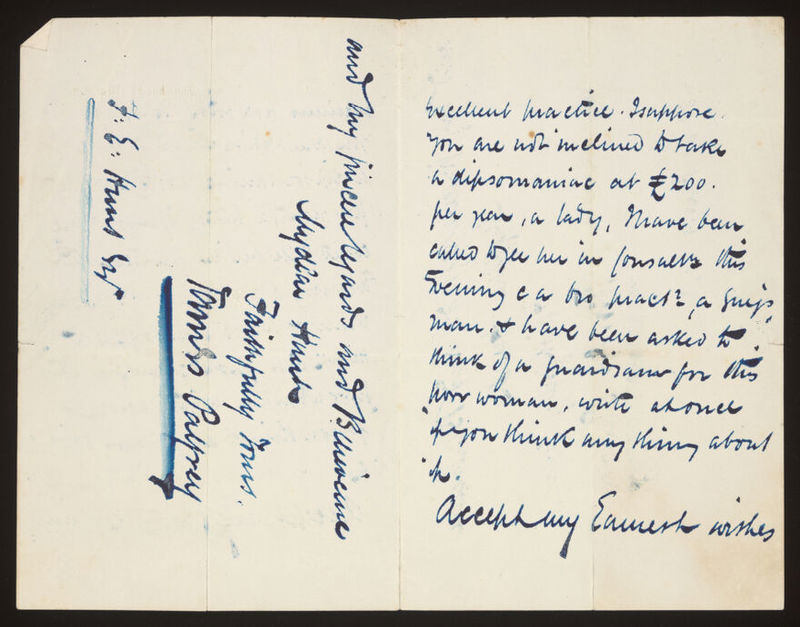 Excellent practice. I suppose
you are not inclined to take
a dipsomaniac at £200.
per year, a lady, I have been
called to see her in consultn this
Evening c a bro practr, a Guy's
man. & have been asked to
think of a guardian for this
poor woman, write at once
if you think any thing about
it.
Accept my Earnest wishes
and my sincere regards and Believe me
My dear Hunt
Faithfully Yours.
James Palfrey
F: E: Hunt Esqr